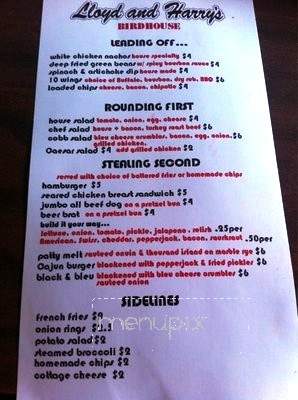 Lloyd and Harry's
BIRDHOUSE
LEADING OFF...
white chicken nachos house specialty $4
deep fried green beans w/ spicy bourbon sauce $4
spinach & artichoke dip house made $4
10 wings choice of Buffalo, bourbon, dry rub, BBQ $6
loaded chips cheese, bacon, chipotle $4
ROUNDING FIRST
house salad tomato, onion, egg, cheese $4
chef salad house + bacon, turkey roast beef $6
cobb salad bleu cheese crumbles, bacon, egg, onion, $6
grilled chicken.
Caesar salad $4 add grilled chicken $2
STEALING SECOND
served with choice of battered fries or homemade chips
hamburger $5
seared chicken breast sandwich $5
jumbo all beef dog on a pretzel bun $4
beer brat on a pretzel bun $4
build it your way...
lettuce, onion, tomato, pickle, jalapeno, relish .25per
American, Swiss, cheddar, pepperjack, bacon, saurkraut .50per
patty melt sauteed onion & thousand island on marble rye $6
Cajun burger blackened with pepperjack & fried pickles $6
black & bleu blackened with bleu cheese crumbles $6
sauteed onion
SIDELINES
french fries $2
onion rings $2.5
potato salad $2
steamed broccoli $2
homemade chips $2
cottage cheese $2
menupix